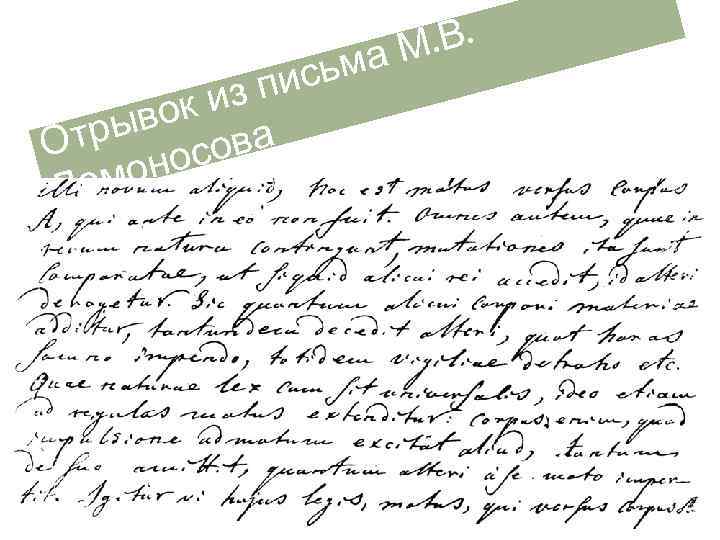 Отрывок из письма М.В.
Ломоносова
illi novum aliquid, hoc est motus versus Corpus
A, qui ante in eo non fuit. Omnes autem, quae in
rerum natura contingunt, mutationes ita sunt
comparatae, ut si quid alicui rei accedit, id alteri
derogetur. Sic quantum alicui corpori materiae
additur, tantundem decedit alteri, quot horas
somno impendo, totidem vigiliae detraho etc.
Quae naturae lex cum sit universalis, ideo etiam
ad regulas motus extenditur: corpus enim, quod
impulsione ad motum excitat aliud, tantum
de suo amittit, quantum alteri a se moto imper-
tit. Igitur vi hujus legis, motus, qui versus corpus